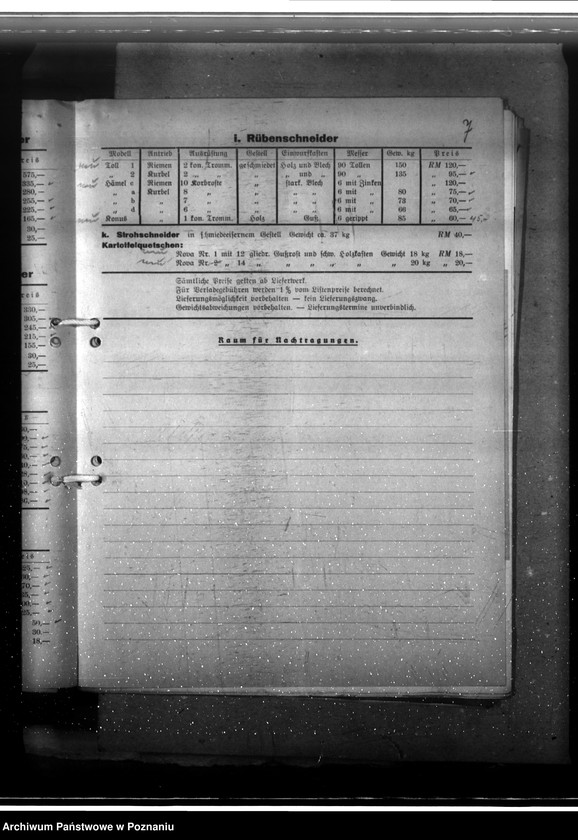 7
i. Rübenschneider
Modell Antrieb Ausrüstung Gestell Einwurfkasten Messer Gew. kg Preis
Toll 1 Riemen 2 kon. Tromm. geschmiedet Holz und Blech 90 Tollen 150 RM 120,—
„ 2 Kurbel 2 „ „ „ „ und „ 90 „ 135 „ 95,—
Hämel c Riemen 10 Korbroste „ stark. Blech 6 mit Zinken „ 120,—
„ a Kurbel 8 „ „ „ 6 mit „ 80 „ 75,—
„ b „ 7 „ „ „ 6 mit „ 73 „ 70,—
„ d „ 6 „ „ „ 6 mit „ 66 „ 65,—
Konus „ 1 kon. Tromm. Holz Guß. 6 gerippt 85 „ 60,—
k. Strohschneider in schmiedeisernem Gestell Gewicht ca. 37 kg RM 40,—
Kartoffelquetschen:
Nova Nr. 1 mit 12 gliedr. Gußrost und schw. Holzkasten Gewicht 18 kg RM 18,—
Nova Nr. 2 „ 14 „ „ „ „ „ „ 20 kg „ 20,—
Sämtliche Preise gelten ab Lieferwerk.
Für Verladegebühren werden 1 % vom Listenpreise berechnet.
Lieferungsmöglichkeit vorbehalten — kein Lieferungszwang.
Gewichtsabweichungen vorbehalten. — Lieferungstermine unverbindlich.
Raum für Nachtragungen.
er
reis
575,—
335,—
280,—
255,—
225,—
165,—
30,—
25,—
er
reis
330,—
305,—
245,—
215,—
155,—
30,—
25,—
50,—
30.—
18,—
Archiwum Państwowe w Poznaniu